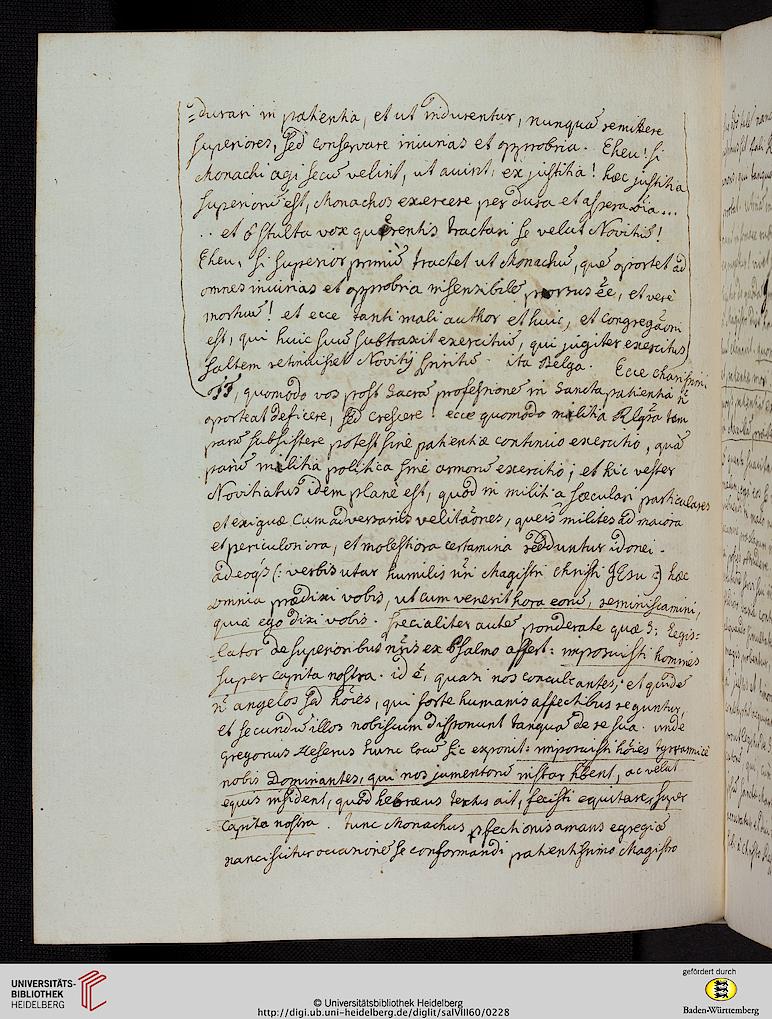 =durari in patientia, et ut indurentur, nunquã remittere
superiores, sed conservare iniurias et opprobria. Eheu! si
Monachi agi secũ velint, ut aiunt, ex justitia! hæc justitia
superiorũ est, Monachos exercere per dura et aspera via...
.. et ô stulta vox quærentis tractari se velut Novitiũ!
Eheu, si superior primũ tractet ut Monachũ, quẽ oportet ad
omnes iniurias et opprobria insensibilẽ prorsus ẽe, et verè
mortuũ! et ecce tanti mali author et huic, et congregãoni
est, qui huic suũ subtraxit exercitiũ, qui jugiter exercitus
saltem retinuisset Novitij spiritũ. ita Belga. Ecce charissimi
FF, quomodo vos post sacrã professionẽ in sancta patientia ñ
oporteat deficere, sed crescere! ecce quomodo militia Rlgõsa tam
parũ subsistere potest sinè patientiæ continuo exercitio, quã
parũ militia politica sinè armorũ exercitio; et hic vester
Novitiatus idem planè est, quod in militia sæculari particulares
et exiguæ cum adversarijs velitãones, queis milites ad maiora
et periculosiora, et molestiora certamina redduntur idonei.
adeoq́s (: verbis utar humilis ñri Magistri Christi JESu :) hæc
omnia prædixi vobis, ut cum venerit hora eorũ, reminiscamini,
quia ego dixi vobis. specialiter autẽ ponderate quæ S: Legis=
=lator de superioribus ñris ex Psalmo affert: imposuisti homines
super capita nostra. id ẽ, quasi nos conculcantes; et quidẽ
ñ angelos sed hoĩes, qui forte humanis affectibus reguntur,
et secundũ illos nobiscum disponunt tanquã de re sua. undè
gregorius hunc locũ sic exponit: imposuisti hoĩes tyrannicè
nobis Dominantes, qui nos jumentorũ instar hãbent, ac velut
equis insident, quod hebræus textus ait, fecisti equitare super
capita nostra. tunc Monachus pfectionis amans egregiã
nanciscitur occasionẽ se conformandi patientissimo Magistro
UNIVERSITÄTS-
BIBLIOTHEK
HEIDELBERG
© Universitätsbibliothek Heidelberg
http://digi.ub.uni-heidelberg.de/diglit/salVIII60/0228
gefördert durch
Baden-Württemberg